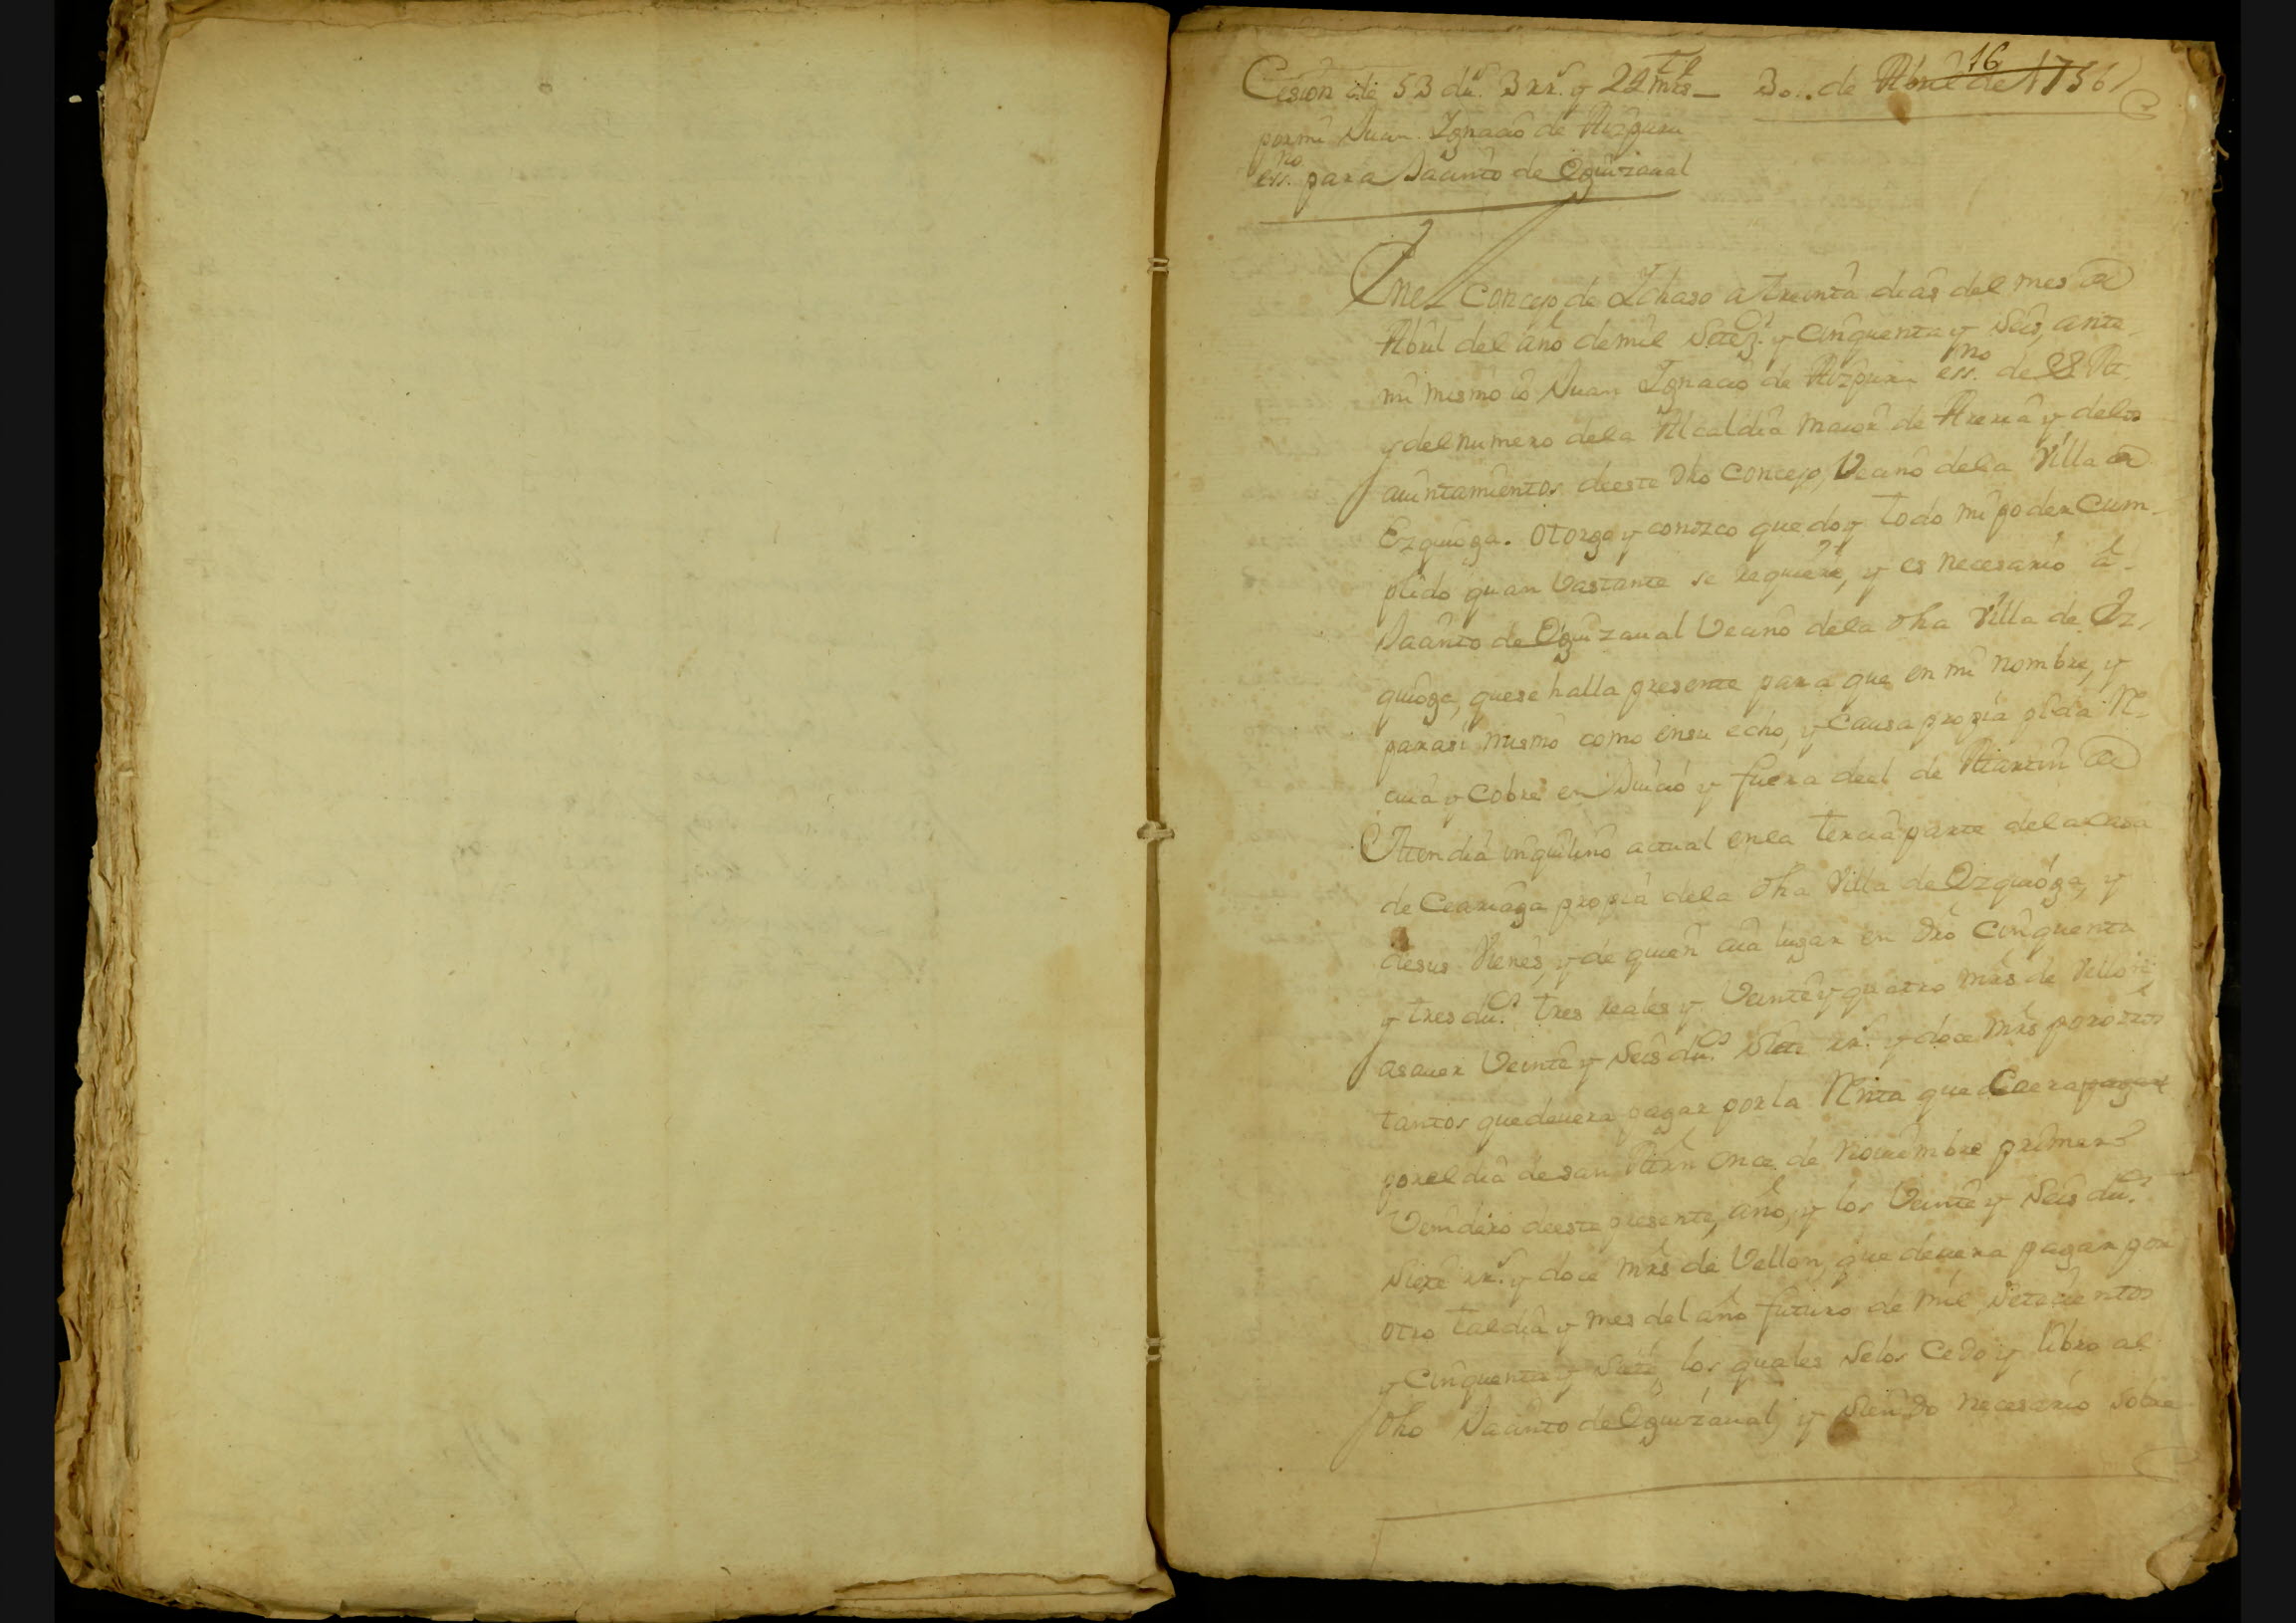 Cesion de 53 du.s 3 rr.s y 24 mrs — 30.. de Abril de 1756
16
por mi Juan Ignacio de Aizpuru
ess.no para Jacinto de Eguizaual
Enel Concejo de Ichaso a treinta dias del mes de
Abril del año demil Setez.os y Cinquenta y Seis, ante
mi mismo io Juan Ignacio de Aizpuru ess.no de S. M.
y del numero dela Alcaldia maior de Areria y delos
auintamientos deeste dho Concejo, Vecino dela Villa de
Ezquioga. Otorgo y conozco que doy todo mi poder Cum-
plido quan Vastante se requiere, y es necesario á
Jacinto de Eguizaual Vecino dela dha Villa de Ez-
quioga, quese halla presente para que en mi nombre, y
parasi mismo como ensu echo, y Causa propia pida Re-
ciua y Cobre en Juicio y fuera deel de Martin de
Mendia inquilino actual enla terciaparte delaCasa
de Ceariaga propia dela dha Villa de Ezquioga, y
desus Vienes, y de quien aia lugar en dro Cinquenta
y tres du.os tres reales y Veinte y quatro mrs de Vellon,
asauer Veinte y Seis du.os Siete rr.s y doce mrs porotros
tantos quedeuera pagar porla Renta que Caera pagar
porel dia desan Mrn once de Nouiembre primero
Venidero deeste presente año, y los Veinte y Seis du.os
Siete rr.s y doce mrs de Vellon, que deuera pagar por
otro taldia y mes del año futuro de mil Setecientos
y Cinquenta y Siete, los quales Selos Cedo y libro al
dho Jacinto de Eguizaual, y Siendo necesario Sobre